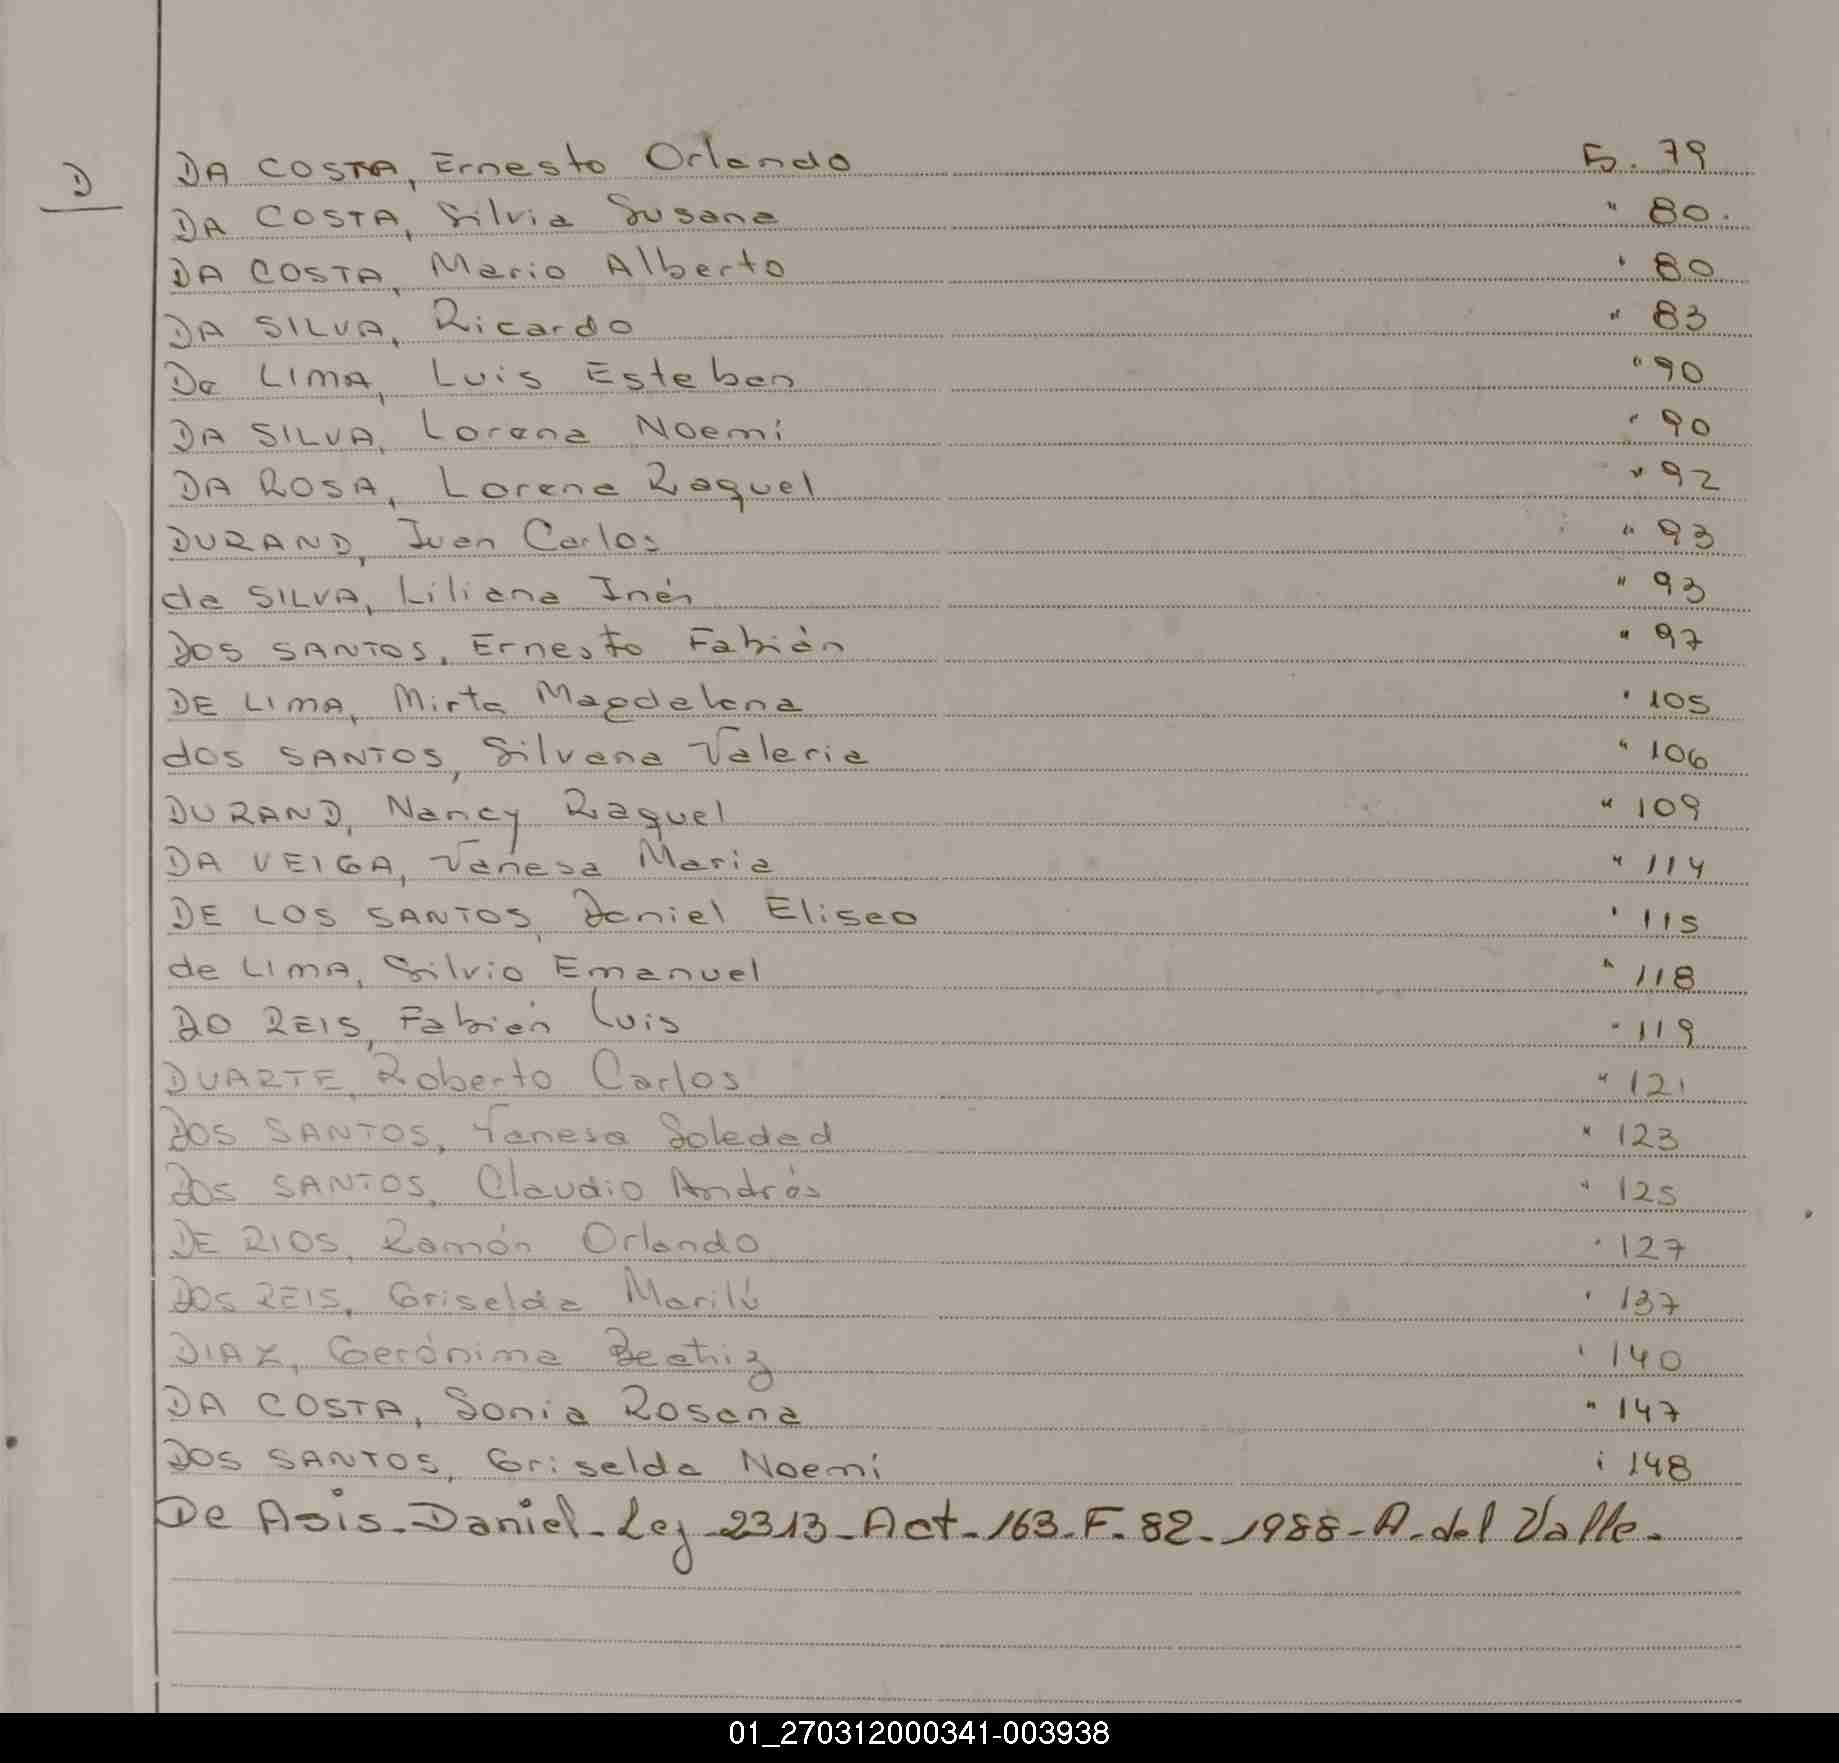 D
DA COSTA, Ernesto Orlando F. 79
DA COSTA, Silvia Susana " 80.
DA COSTA, Mario Alberto ' 80
DA SILVA, Ricardo " 83
De LIMA, Luis Esteban " 90
DA SILVA, Lorena Noemi " 90
DA ROSA, Lorena Raquel " 92
DURAND, Juan Carlos " 93
da SILVA, Liliana Inés " 93
DOS SANTOS, Ernesto Fabián " 97
DE LIMA, Mirta Magdalena ' 105
dos SANTOS, Silvana Valeria " 106
DURAND, Nancy Raquel " 109
DA VEIGA, Vanesa Maria " 114
DE LOS SANTOS, Daniel Eliseo ' 115
de LIMA, Silvio Emanuel " 118
DO REIS, Fabián Luis " 119
DUARTE, Roberto Carlos " 121
DOS SANTOS, Vanesa Soledad " 123
DOS SANTOS, Claudio Andrés " 125
DE RIOS, Ramón Orlando ' 127
DOS REIS, Griselda Marilú ' 137
DIAZ, Gerónima Beatriz ' 140
DA COSTA, Sonia Rosana " 147
DOS SANTOS, Griselda Noemi " 148
De Asis - Daniel - Ley - 2313 - Act - 163 - F. 82 - 1988 - A. del Valle -
01_270312000341-003938